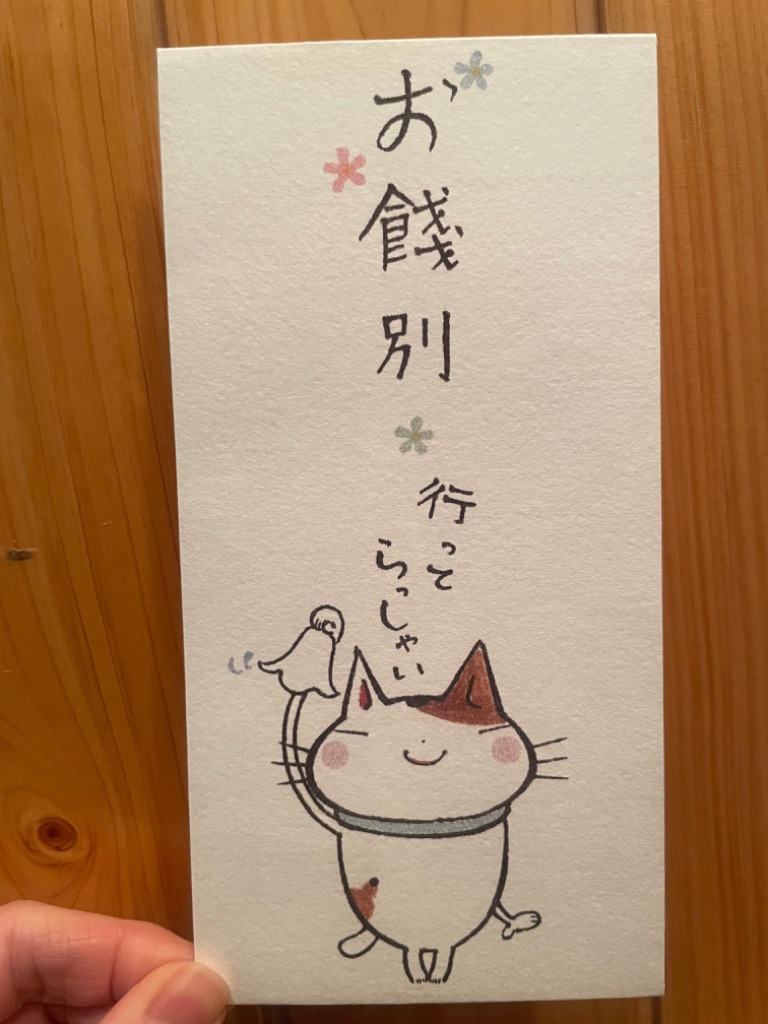 お餞別
行って
らっしゃい